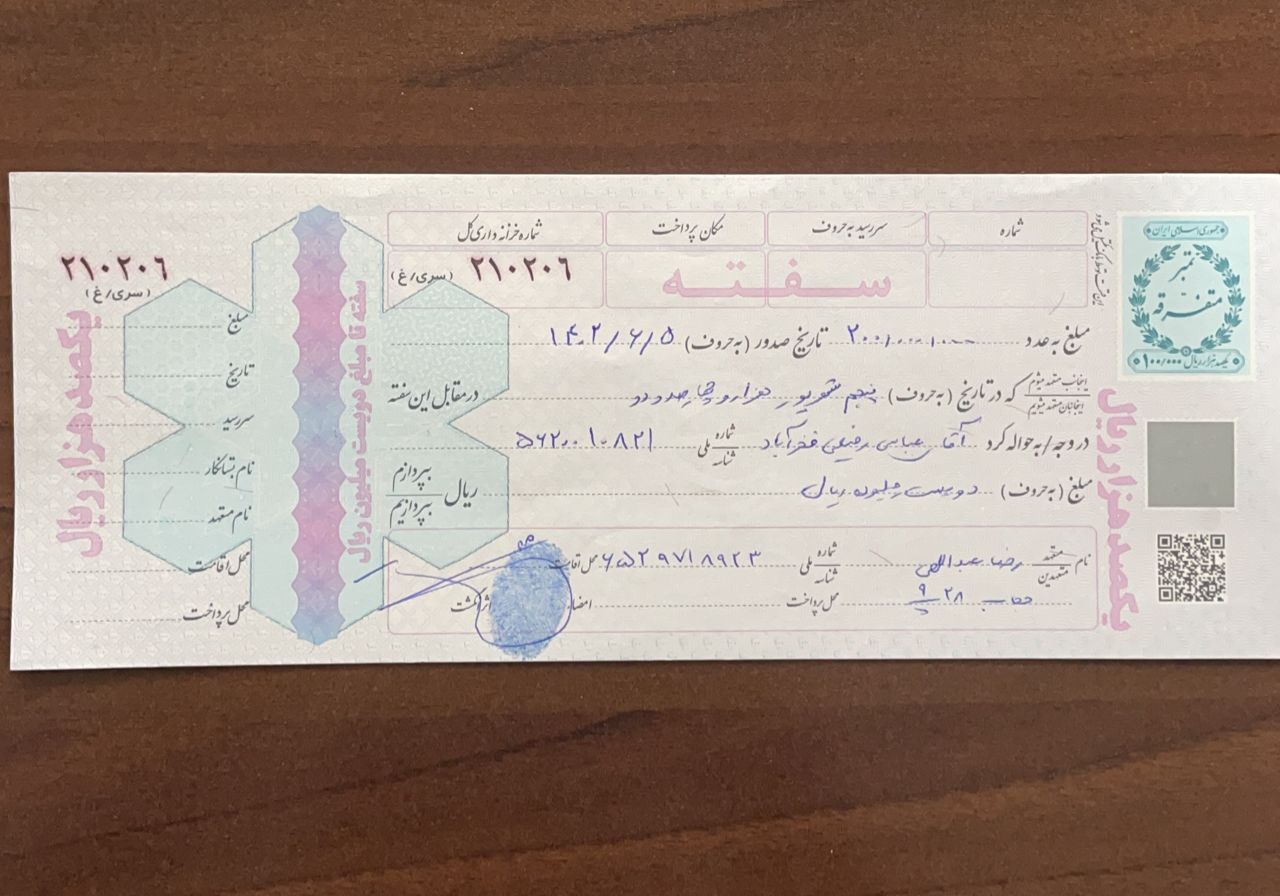 جمهوری اسلامی ایران
تمبر
متفرقه
یکصد هزار ریال ۱۰۰/۰۰۰
یکصد هزار ریال
شماره
سررسید به حروف
مکان پرداخت
شماره خزانه داری کل
سفته
۲۱۰۲۰۶ (سری/غ)
مبلغ به عدد ۲۰۰/۰۰۰/۰۰۰ تاریخ صدور (به حروف) ۱۴۰۲/۶/۵
اینجانب متعهد میشوم
اینجانبان متعهد میشویم
که در تاریخ (به حروف) پنجم شهریور هزار و چهارصد و دو در مقابل این سفته
در وجه/به حواله کرد آقای عباس رفیعی فخرآباد شماره ملی شناسه ۵۶۲۰۰۱۰۸۲۱
مبلغ (به حروف) دویست میلیون ریال ریال بپردازم
بپردازیم
نام متعهد متعهدین رضا عبداللهی شماره ملی شناسه ۶۵۲۹۷۱۸۹۲۳ محل اقامت
۲۸ محل پرداخت امضا اثر انگشت
سفته تا مبلغ دویست میلیون ریال
۲۱۰۲۰۶
(سری/غ)
مبلغ
تاریخ
سررسید
نام بستانکار
نام متعهد
محل اقامت
محل پرداخت
یکصد هزار ریال